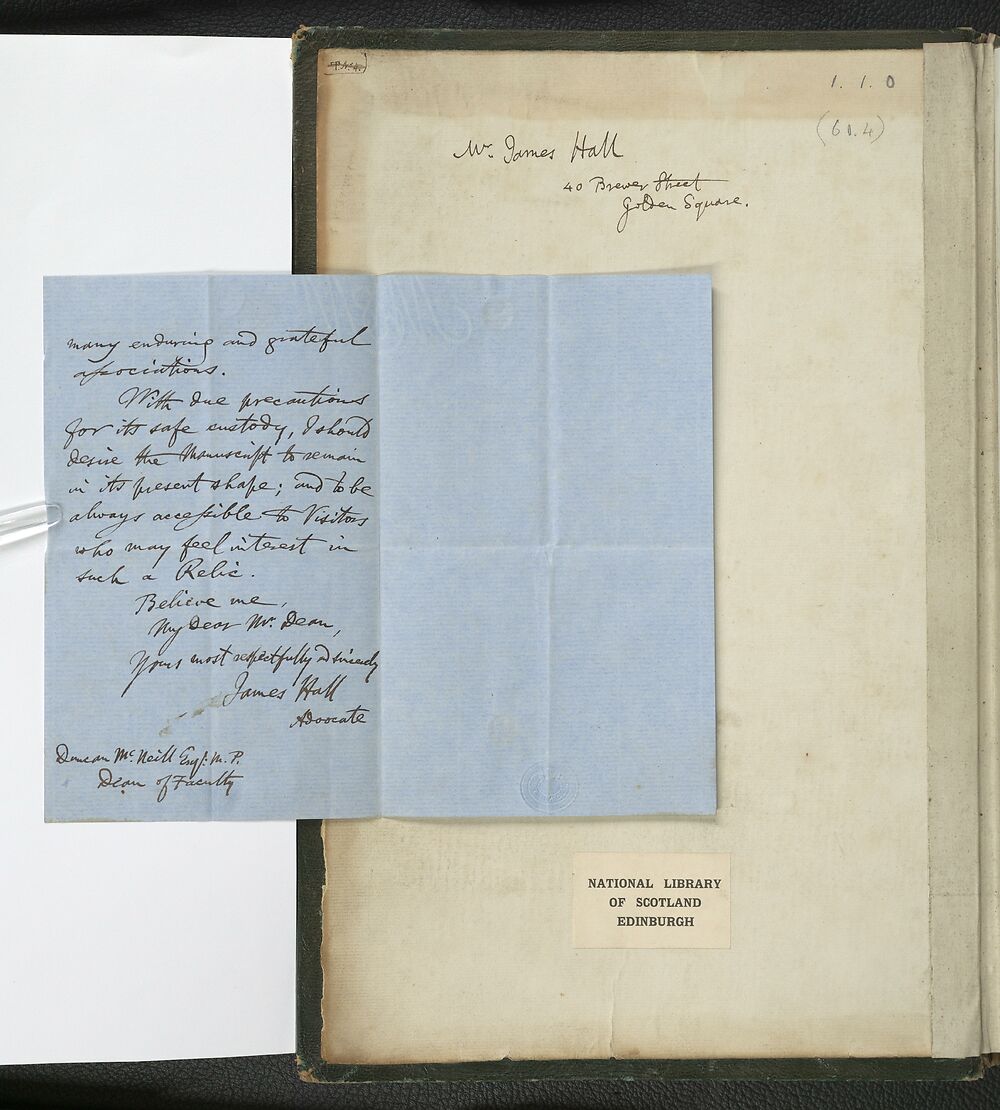 1. 1. 0
(61.4)
Mr. James Hall
40 Brewer Street
Golden Square.
many enduring and grateful
associations.
With due precautions
for its safe custody, I should
desire the Manuscript to remain
in its present shape; and to be
always accessible to Visitors
who may feel interest in
such a Relic.
Believe me,
My Dear Mr. Dean,
Yours most respectfully & sincerely
James Hall
Advocate
Duncan McNeill Esqr. M.P.
Dean of Faculty
NATIONAL LIBRARY
OF SCOTLAND
EDINBURGH